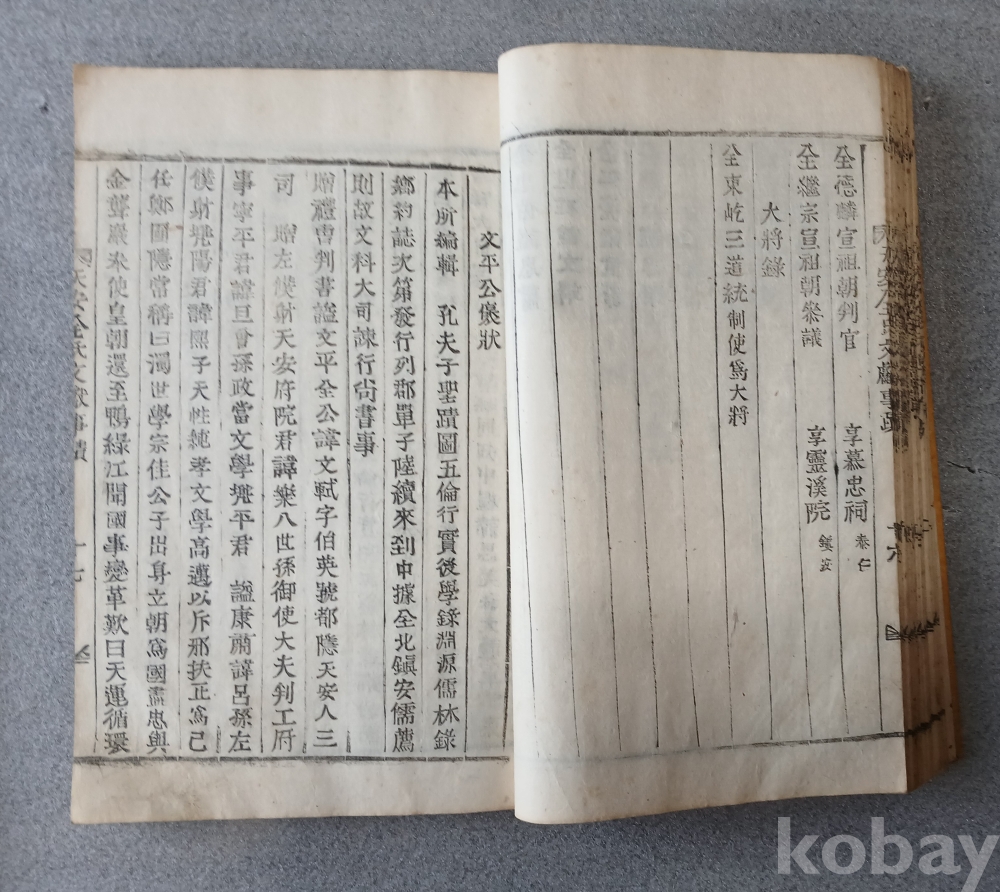 全德麟宣祖朝判官 享慕忠祠 泰仁
全繼宗宣祖朝參議 享靈溪院 鎭安
大將錄
全東屹三道統制使爲大將
文平公褒狀
本所編輯 孔夫子聖蹟圖五倫行實後學錄淵源儒林錄
鄕約誌次第發行列郡單子陸續來到中據全北鎭安儒薦
則故文科大司諫行尙書事
贈禮曹判書謚文平全公諱文軾字伯英號都隱天安人三
司 贈左僕射天安府院君諱樂八世孫御使大夫判工府
事寧平君諱亘曾孫政當文學瓽平君 謚康肅諱呂孫左
僕射瓽陽君諱熙子天性純孝文學高邁以斥邪扶正爲己
任鄭圃隱當稱曰濁世學宗佳公子出身立朝爲國盡忠與
金聾巖朱使皇朝還至鴨綠江聞國事變革歎曰天運循環
天安全氏文獻事蹟 十七
kobay